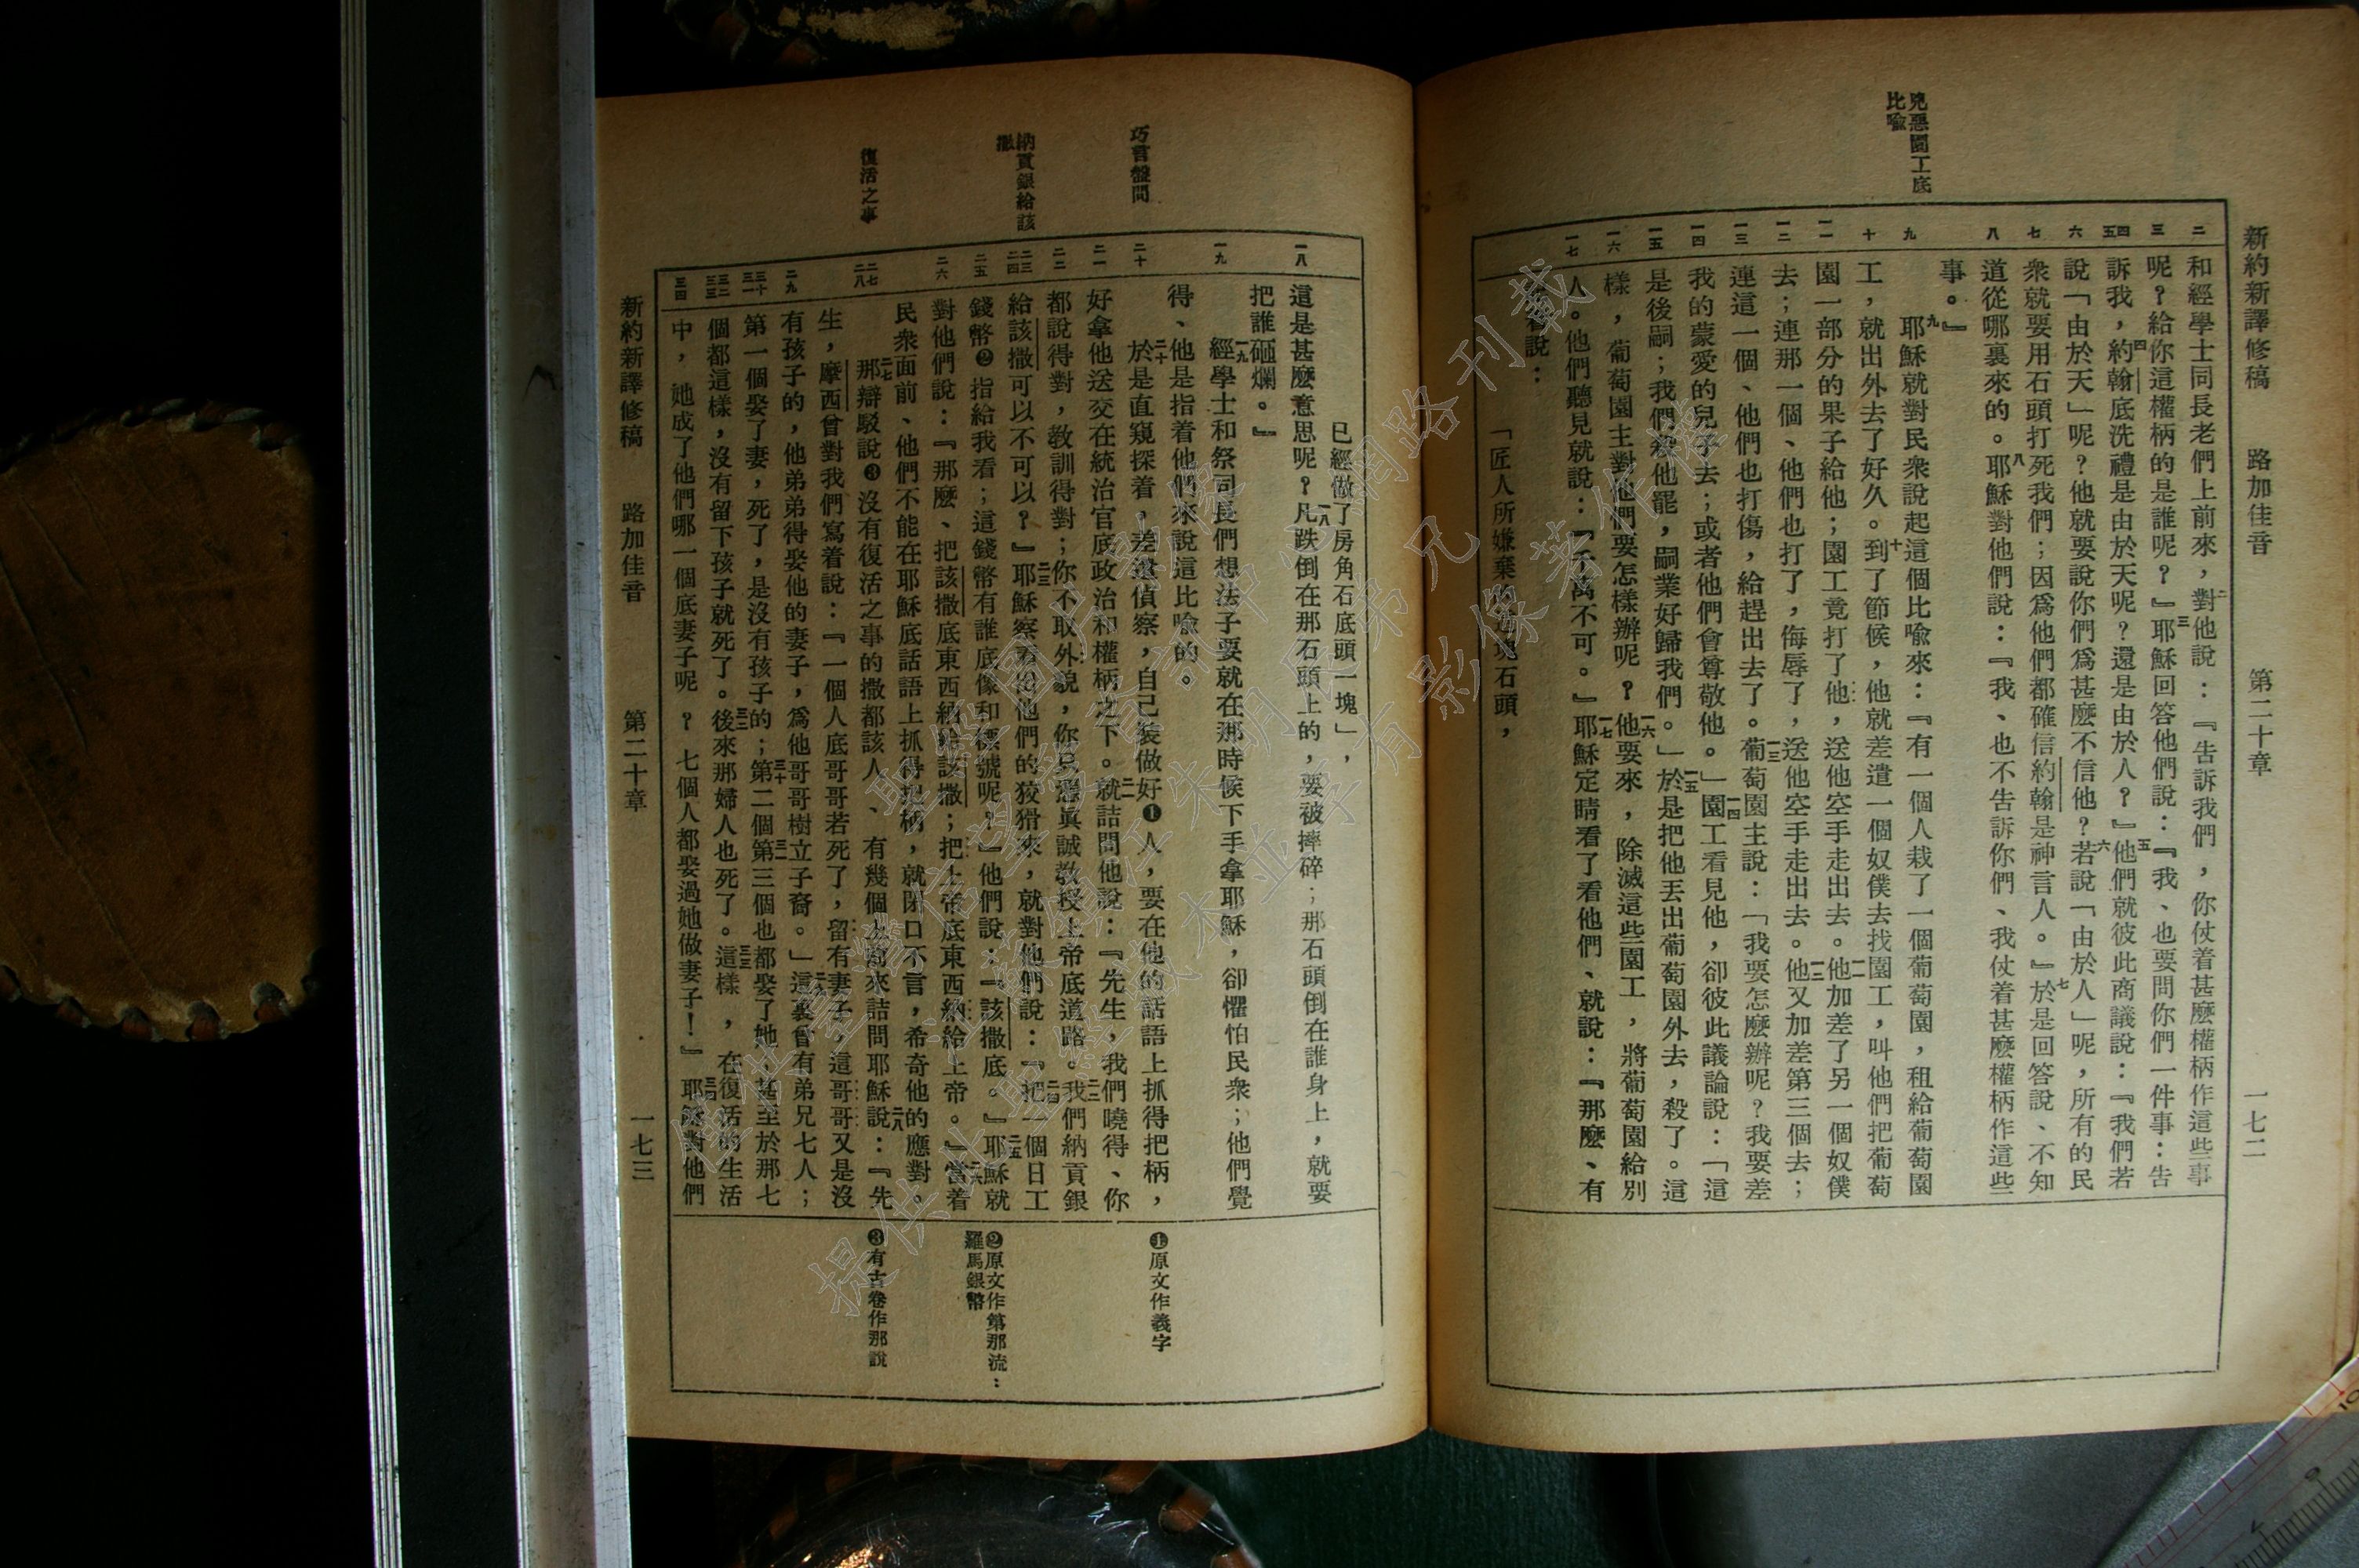 新約新譯修稿　路加佳音　第二十章　一七二
兇惡園工底
比喻
二 三 四 五 六 七 八 九 十 一一 一二 一三 一四 一五 一六 一七
和經學士同長老們上前來，二對他說：『告訴我們，你仗着甚麼權柄作這些事
呢？給你這權柄的是誰呢？』三耶穌回答他們說：『我、也要問你們一件事：告
訴我，四約翰底洗禮是由於天呢？還是由於人？』五他們就彼此商議說：『我們若
說「由於天」呢？他就要說你們爲甚麼不信他？六若說「由於人」呢，所有的民
衆就要用石頭打死我們；因爲他們都確信約翰是神言人。』七於是回答說、不知
道從哪裏來的。八耶穌對他們說：『我、也不告訴你們、我仗着甚麼權柄作這些
事。』
九耶穌就對民衆說起這個比喻來：『有一個人栽了一個葡萄園，租給葡萄園
工，就出外去了好久。十到了節候，他就差遣一個奴僕去找園工，叫他們把葡萄
園一部分的果子給他；園工竟打了他，送他空手走出去。一一他加差了另一個奴僕
去；連那一個、他們也打了，侮辱了，送他空手走出去。一二他又加差第三個去；
連這一個、他們也打傷，給趕出去了。一三葡萄園主說：「我要怎麼辦呢？我要差
我的蒙愛的兒子去；或者他們會尊敬他。」一四園工看見他，卻彼此議論說：「這
是後嗣；我們殺他罷，嗣業好歸我們。」一五於是把他丟出葡萄園外去，殺了。這
樣，葡萄園主對他們要怎樣辦呢？一六他要來，除滅這些園工，將葡萄園給別
人。他們聽見就說：『千萬不可。』一七耶穌定睛看了看他們、就說：『那麼、有
着說：
「匠人所嫌棄的這塊石頭，
巧言盤問
納貢銀給該
撒
復活之事
一八 一九 二十 二一 二二 二三 二四 二五 二六 二七 二八 二九 三十 三一 三二 三三 三四
已經做了房角石底頭一塊」，
這是甚麼意思呢？一八凡跌倒在那石頭上的，要被摔碎；那石頭倒在誰身上，就要
把誰砸爛。』
一九經學士和祭司長們想法子要就在那時候下手拿耶穌，卻懼怕民衆；他們覺
得、他是指着他們來說這比喻的。
二十於是直窺探着，差遣偵察，自己裝做好❶人，要在他的話語上抓得把柄，
好拿他送交在統治官底政治和權柄之下。二一就詰問他說：『先生，我們曉得、你
都說得對，教訓得對；你不取外貌，你只憑眞誠教授上帝底道路。二二我們納貢銀
給該撒可以不可以？』二三耶穌察看出他們的狡猾來，就對他們說：『二四把一個日工
錢幣❷指給我看；這錢幣有誰底像和標號呢？』他們說：『該撒底。』二五耶穌就
對他們說：『那麼、把該撒底東西納給該撒；把上帝底東西納給上帝。』二六當着
民衆面前、他們不能在耶穌底話語上抓得把柄，就閉口不言，希奇他的應對。
二七那辯駁說❸沒有復活之事的撒都該人、有幾個上前來詰問耶穌說：二八『先
生，摩西曾對我們寫着說：『一個人底哥哥若死了，留有妻子，這哥哥又是沒
有孩子的，他弟弟得娶他的妻子，爲他哥哥樹立子裔。」二九這裏曾有弟兄七人；
第一個娶了妻，死了，是沒有孩子的；三十第二個三一第三個也都娶了她，甚至於那七
個都這樣，沒有留下孩子就死了。三二後來那婦人也死了。三三這樣，在復活的生活
中，她成了他們哪一個底妻子呢？七個人都娶過她做妻子！』三四耶穌對他們
❶原文作義字
❷原文作第那流：
羅馬銀幣
❸有古卷作那說
新約新譯修稿　路加佳音　第二十章　一七三